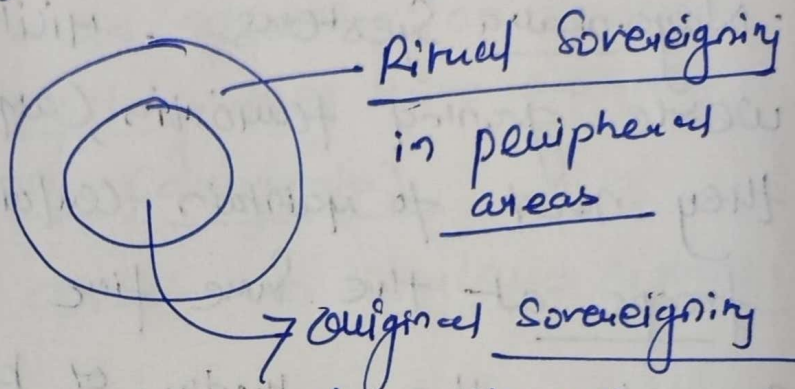 Ritual Sovereignity
in peripheral
areas
Original Sovereignity